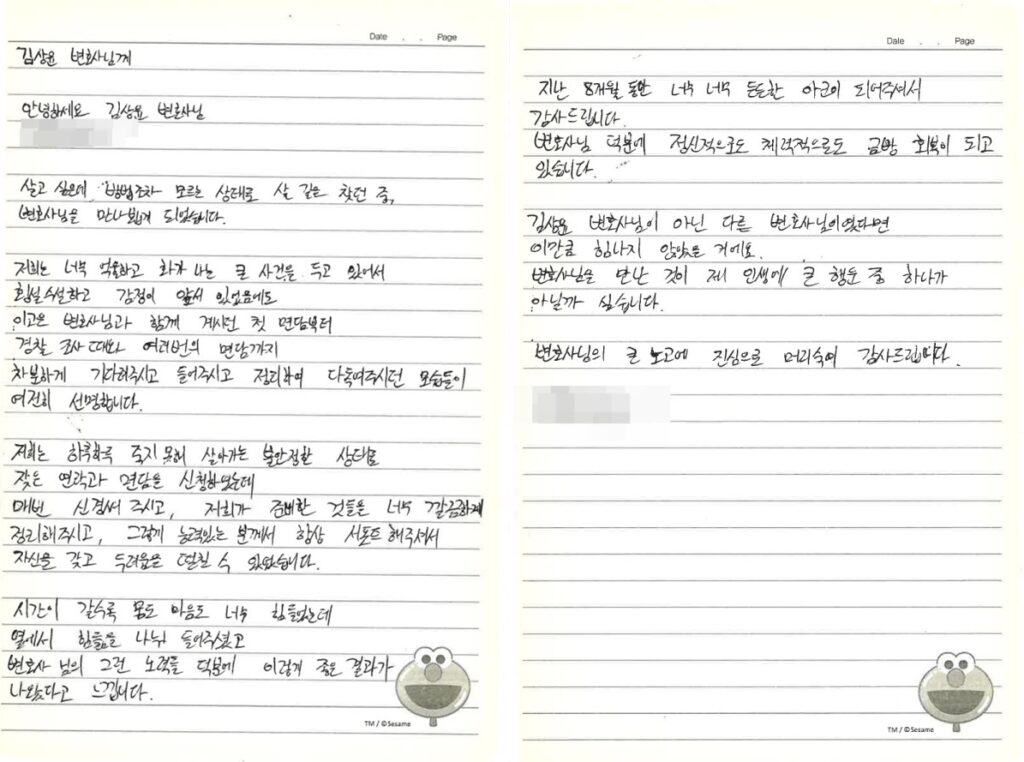 Date . . Page
김상윤 변호사님께
안녕하세요 김상윤 변호사님
살고 싶은데 방법조차 모르는 상태로 살 길은 찾던 중,
변호사님을 만나뵙게 되었습니다.
저희는 너무 억울하고 화가 나는 큰 사건을 두고 있어서
횡설수설하고 감정이 앞서 있었음에도
이고은 변호사님과 함께 계시던 첫 면담부터
경찰 조사 때와 여러번의 면담까지
차분하게 기다려주시고 들어주시고 정리하여 다독여주시던 모습들이
여전히 선명합니다.
저희는 하루하루 죽지 못해 살아가는 불안정한 상태로
잦은 연락과 면담을 신청하였는데
매번 신경써 주시고, 저희가 준비한 것들을 너무 깔끔하게
정리해주시고, 그렇게 능력있는 분께서 항상 서포트 해주셔서
자신을 갖고 두려움을 떨칠 수 있었습니다.
시간이 갈수록 몸도 마음도 너무 힘들었는데
옆에서 힘듦을 나눠 들어주셨고
변호사 님의 그런 노력들 덕분에 이렇게 좋은 결과가
나왔다고 느낍니다.
TM / ©Sesame
Date . . Page
지난 8개월 동안 너무 너무 든든한 아군이 되어주셔서
감사드립니다.
변호사님 덕분에 정신적으로도 체력적으로도 금방 회복이 되고
있습니다.
김상윤 변호사님이 아닌 다른 변호사님이었다면
이만큼 힘나지 않았을 거에요.
변호사님을 만난 것이 제 인생에 큰 행운 중 하나가
아닐까 싶습니다.
변호사님의 큰 노고에 진심으로 머리숙여 감사드립니다.
TM / ©Sesame